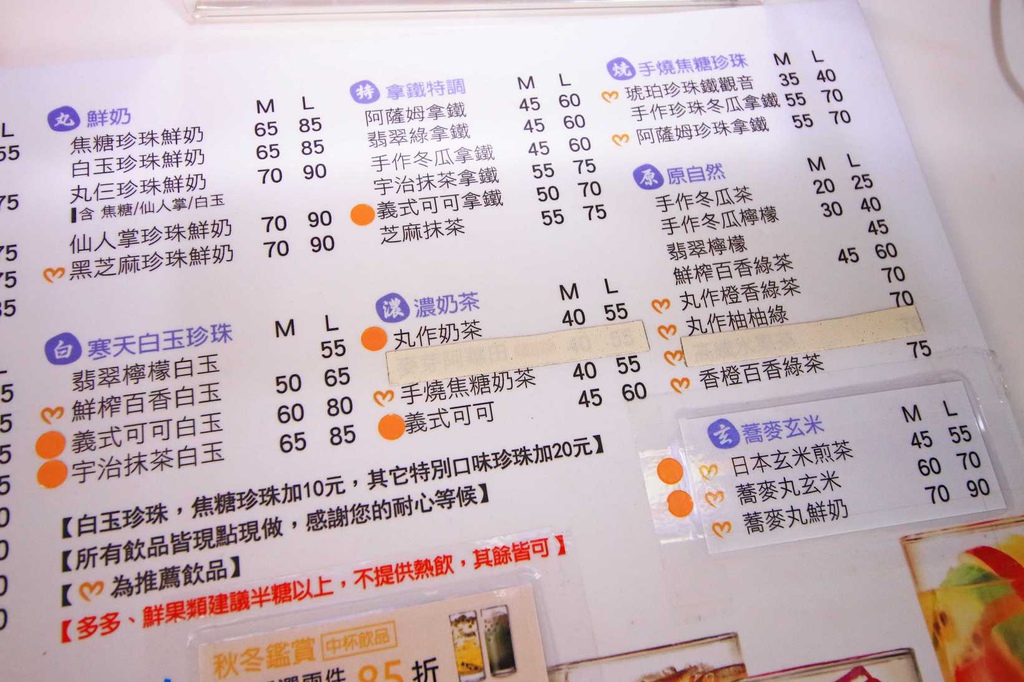 L
55
75
75
75
85
丸 鮮奶 M L
焦糖珍珠鮮奶 65 85
白玉珍珠鮮奶 65 85
丸仨珍珠鮮奶 70 90
含 焦糖/仙人掌/白玉
仙人掌珍珠鮮奶 70 90
黑芝麻珍珠鮮奶 70 90
白 寒天白玉珍珠 M L
翡翠檸檬白玉 55
鮮榨百香白玉 50 65
義式可可白玉 60 80
宇治抹茶白玉 65 85
特 拿鐵特調 M L
阿薩姆拿鐵 45 60
翡翠綠拿鐵 45 60
手作冬瓜拿鐵 45 60
宇治抹茶拿鐵 55 75
義式可可拿鐵 50 70
芝麻抹茶 55 75
濃 濃奶茶 M L
丸作奶茶 40 55
40 55
手燒焦糖奶茶 40 55
義式可可 45 60
燒 手燒焦糖珍珠 M L
琥珀珍珠鐵觀音 35 40
手作珍珠冬瓜拿鐵 55 70
阿薩姆珍珠拿鐵 55 70
原 原自然 M L
手作冬瓜茶 20 25
手作冬瓜檸檬 30 40
翡翠檸檬 45
鮮榨百香綠茶 45 60
丸作橙香綠茶 70
丸作柚柚綠 70
香橙百香綠茶 75
玄 蕎麥玄米 M L
日本玄米煎茶 45 55
蕎麥丸玄米 60 70
蕎麥丸鮮奶 70 90
【白玉珍珠，焦糖珍珠加10元，其它特別口味珍珠加20元】
【所有飲品皆現點現做，感謝您的耐心等候】
【 為推薦飲品】
【多多、鮮果類建議半糖以上，不提供熱飲，其餘皆可】
秋冬鑑賞 中杯飲品
兩件 85折